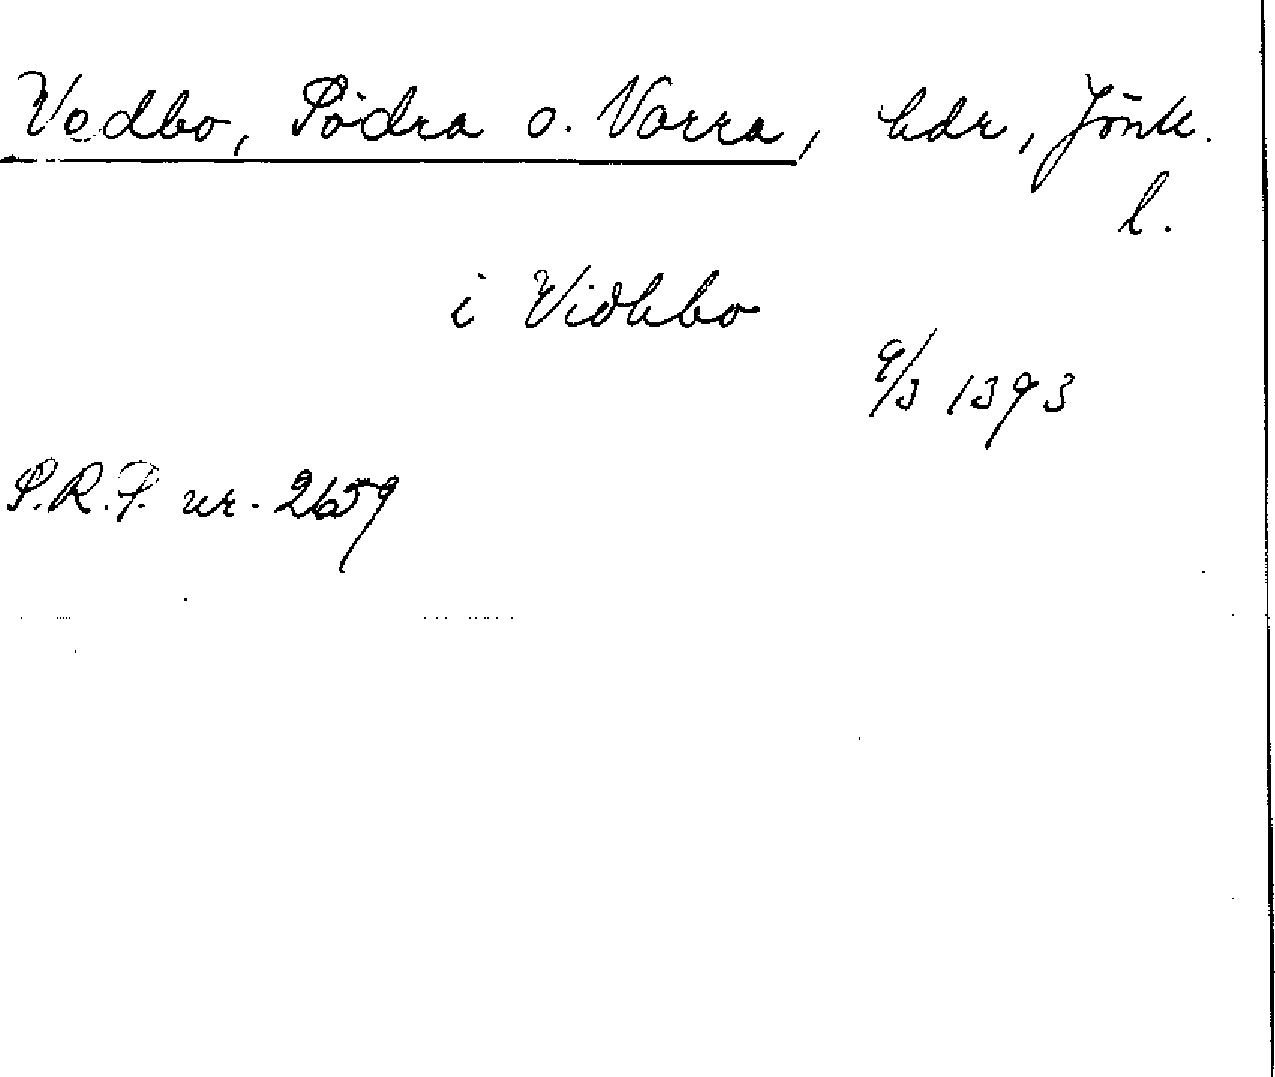 Vedbo, Södra o. Norra, hdr, Jönk.
l.
i Vidhbo
9/3 1393
S.R.P. nr. 2659